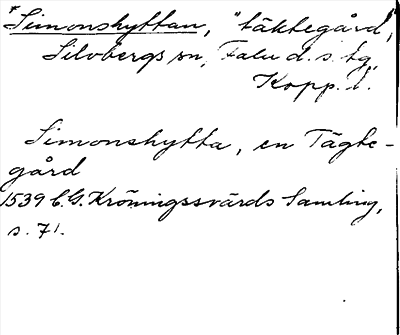 *Simonshyttan, "täktegård",
Silvbergs sn, Falu d. s. tg,
Kopp. l.
Simonshytta, en Tägte-
gård
1539 C.G. Kröningssvärds Samling,
s. 71.